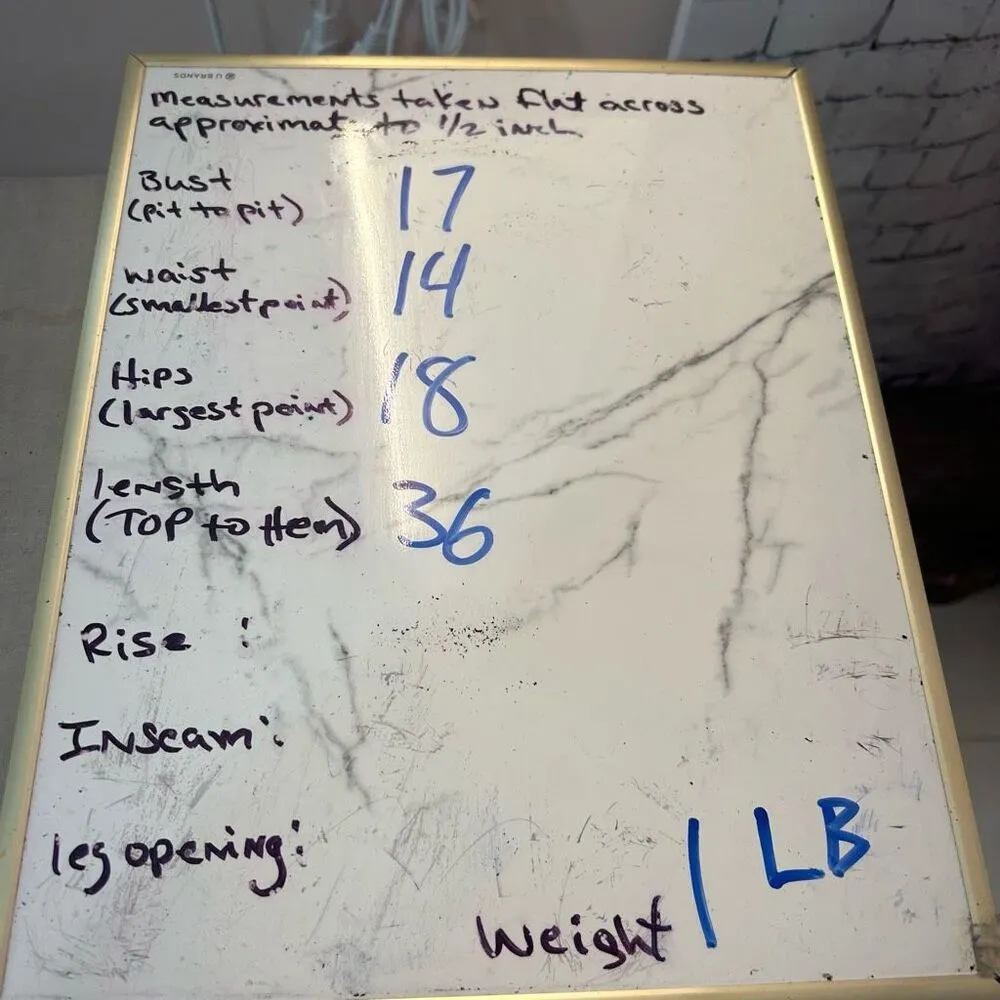 U BRANDS
Measurements taken flat across
approximat to 1/2 inch
Bust 17
(pit to pit)
waist 14
(smallest point)
Hips 18
(largest point)
length 36
(TOP to Hem)
Rise :
Inseam:
leg opening:
Weight 1 LB